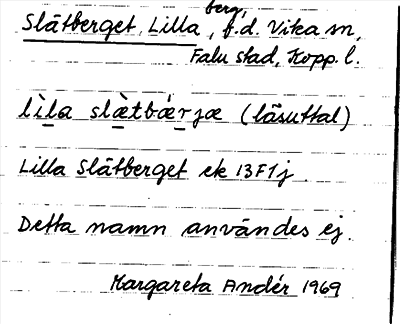 Slätberget, Lilla, berg, f.d. Vika sn,
Falu stad, Kopp. l.
lìla slæ̀tbǽrjæ (läsuttal)
Lilla Slätberget ek 13F1j.
Detta namn användes ej.
Margareta Andér 1969